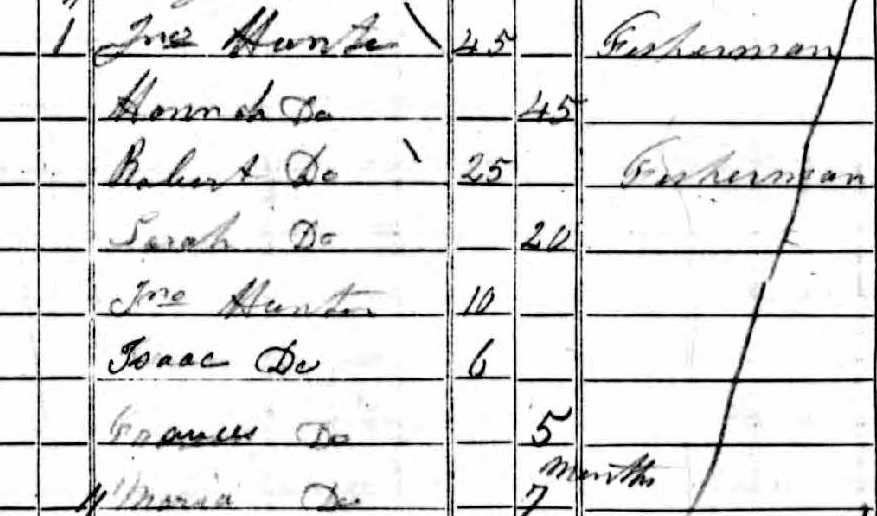 1 Jno Hunter 45 Fisherman
Hannah Do 45
Robert Do 25 Fisherman
Sarah Do 20
Jno Hunter 10
Isaac Do 6
Frances Do 5
months
Maria Do 7